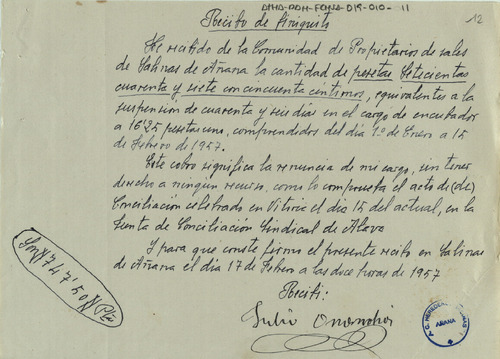 AMHA-DDH-FCMSA-019-010-11
12
Recibo de finiquito
He recibido de la Comunidad de Propietarios de sales
de Salinas de Añana la cantidad de pesetas Setecientas
cuarenta y siete con cincuenta céntimos, equivalentes a la
suspension de cuarenta y seis días en el cargo de encubador
a 16'25 pesetas uno, comprendidos del día 1º de Enero a 15
de Febrero de 1957.
Este cobro significa la renuncia de mi cargo, sin tener
derecho a ningun recurso, como lo comprueba el acto de (de)
Conciliación celebrado en Vitoria el dia 15 del actual, en la
Junta de Conciliación Sindical de Alava
Y para que conste firmo el presente recibo en Salinas
de Añana el día 17 de Febrero a las doce horas de 1957
Recibi:
Julio
Son # 747'50 # Pts
AÑANA